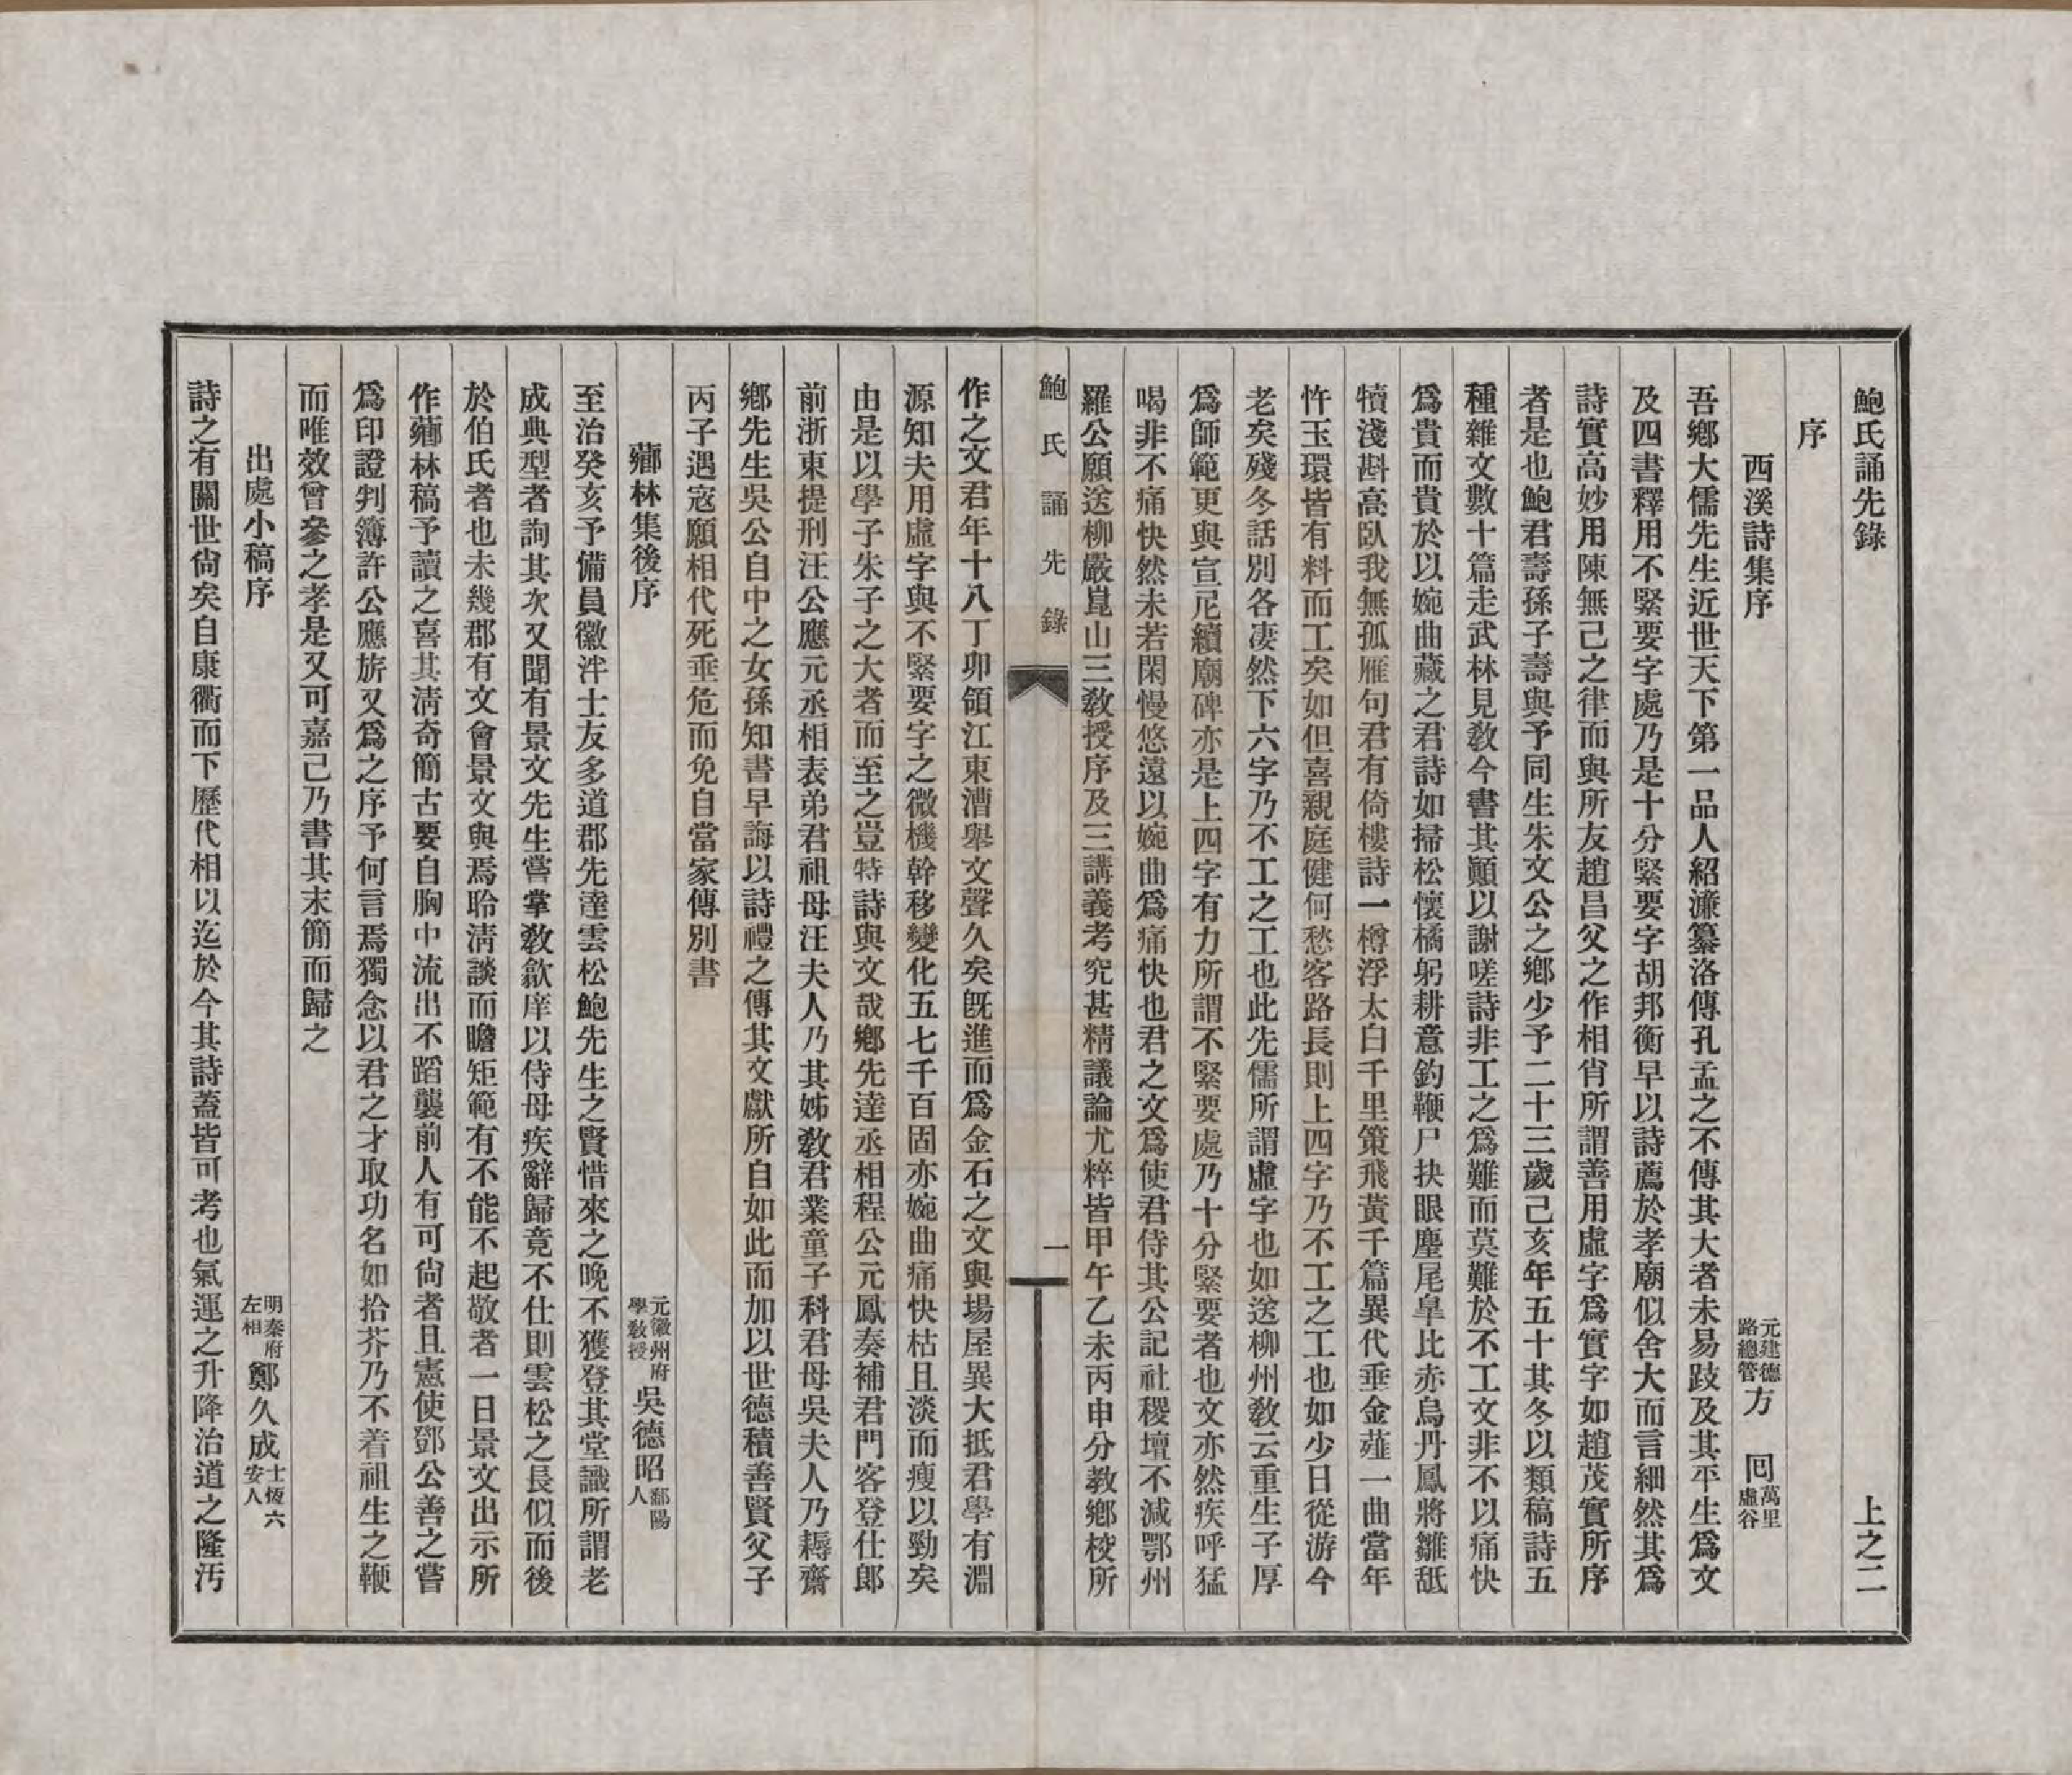 鮑氏誦先錄　上之二
序
西溪詩集序　元建德路總管方　囘萬里虛谷
吾鄉大儒先生近世天下第一品人紹濂纂洛傳孔孟之不傳其大者未易跂及其平生爲文
及四書釋用不緊要字處乃是十分緊要字胡邦衡早以詩薦於孝廟似舍大而言細然其爲
詩實高妙用陳無己之律而與所友趙昌父之作相肖所謂善用虛字爲實字如趙茂實所序
者是也鮑君壽孫子壽與予同生朱文公之鄉少予二十三歲己亥年五十其冬以類稿詩五
種雜文數十篇走武林見敎今書其顚以謝嗟詩非工之爲難而莫難於不工文非不以痛快
爲貴而貴於以婉曲藏之君詩如掃松懷橘躬耕意釣鞭尸抉眼麈尾皐比赤烏丹鳳將雛舐
犢淺斟高臥我無孤雁句君有倚樓詩一樽浮太白千里策飛黃千篇異代垂金薤一曲當年
忤玉環皆有料而工矣如但喜親庭健何愁客路長則上四字乃不工之工也如少日從游今
老矣殘冬話別各凄然下六字乃不工之工也此先儒所謂虛字也如送柳州敎云重生子厚
爲師範更與宣尼續廟碑亦是上四字有力所謂不緊要處乃十分緊要者也文亦然疾呼猛
喝非不痛快然未若閑慢悠遠以婉曲爲痛快也君之文爲使君侍其公記社稷壇不減鄂州
羅公願送柳嚴崑山三敎授序及三講義考究甚精議論尤粹皆甲午乙未丙申分教鄉校所
鮑氏誦先錄　一
作之文君年十八丁卯領江東漕舉文聲久矣旣進而爲金石之文與場屋異大抵君學有淵
源知夫用虛字與不緊要字之微機幹移變化五七千百固亦婉曲痛快枯且淡而瘦以勁矣
由是以學子朱子之大者而至之豈特詩與文哉鄉先達丞相程公元鳳奏補君門客登仕郎
前浙東提刑汪公應元丞相表弟君祖母汪夫人乃其姊敎君業童子科君母吳夫人乃耨齋
鄉先生吳公自中之女孫知書早誨以詩禮之傳其文獻所自如此而加以世德積善賢父子
丙子遇寇願相代死垂危而免自當家傳別書
薌林集後序　元徽州府學敎授吳德昭鄱陽人
至治癸亥予備員徽泮士友多道郡先達雲松鮑先生之賢惜來之晚不獲登其堂識所謂老
成典型者詢其次又聞有景文先生嘗掌敎歙庠以侍母疾辭歸竟不仕則雲松之長似而後
於伯氏者也未幾郡有文會景文與焉聆淸談而瞻矩範有不能不起敬者一日景文出示所
作薌林稿予讀之喜其淸奇簡古要自胸中流出不蹈襲前人有可尙者且憲使鄧公善之嘗
爲印證判簿許公應旂又爲之序予何言焉獨念以君之才取功名如拾芥乃不着祖生之鞭
而唯效曾參之孝是又可嘉己乃書其末簡而歸之
出處小稿序　明秦府左相鄭久成士恆六安人
詩之有關世尙矣自康衢而下歷代相以迄於今其詩蓋皆可考也氣運之升降治道之隆汚